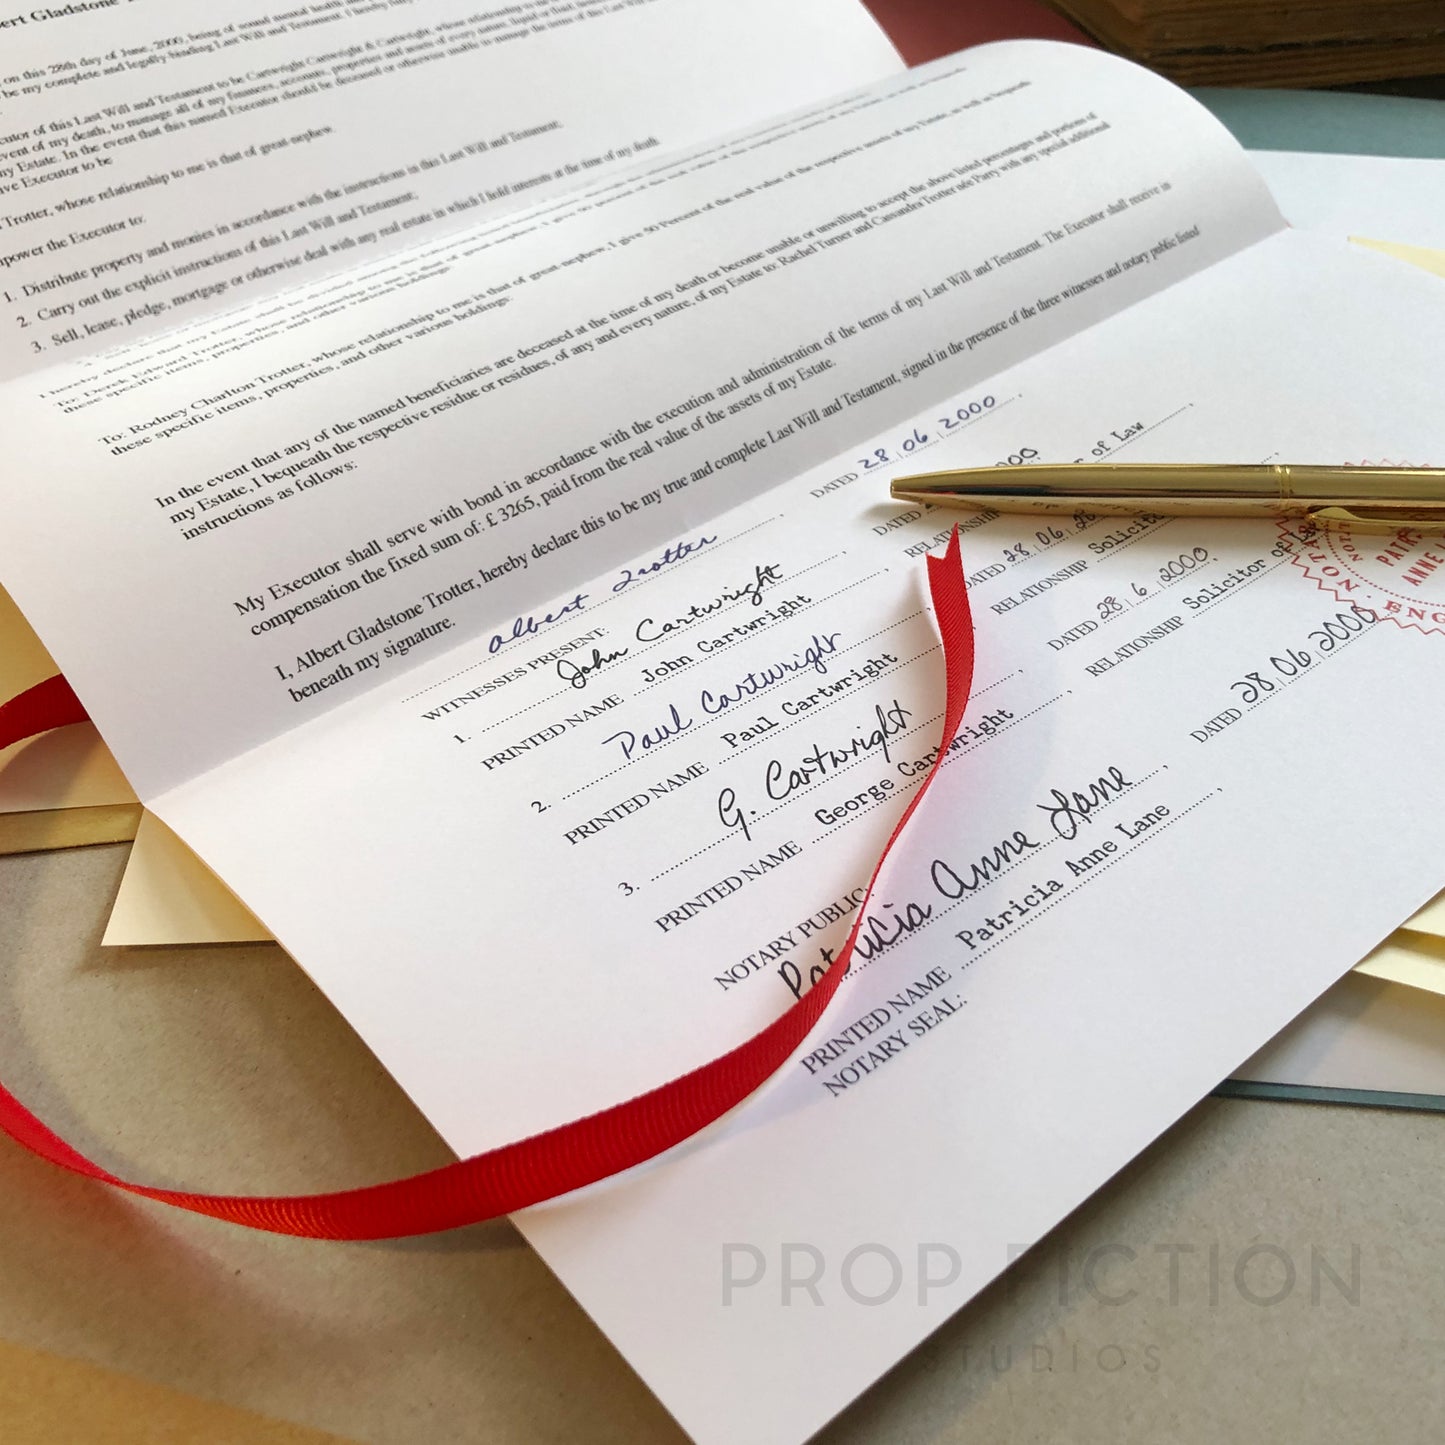 bert Gladstone
on this 28th day of June, 2000, being of sound mental health and
be my complete and legally binding Last Will and Testament. I hereby
cutor of this Last Will and Testament to be Cartwright Cartwright & Cartwright, whose relationship to me is
event of my death, to manage all of my finances, accounts, properties and assets of every nature, liquid or fluid
my Estate. In the event that this named Executor should be deceased or otherwise unable to manage the terms of this Last Will
ive Executor to be
Trotter, whose relationship to me is that of great-nephew.
power the Executor to:
1. Distribute property and monies in accordance with the instructions in this Last Will and Testament;
2. Carry out the explicit instructions of this Last Will and Testament;
3. Sell, lease, pledge, mortgage or otherwise deal with any real estate in which I hold interests at the time of my death
I hereby declare that my Estate shall be divided among the following
To: Derek Edward Trotter, whose relationship to me is that of great-nephew, I give 50 percent of the real value of the respective assets of my Estate, as well as bequeath
these specific items, properties, and other various holdings:
To: Rodney Charlton Trotter, whose relationship to me is that of great-nephew, I give 50 Percent of the real value of the respective assets of my Estate, as well as bequeath
these specific items, properties, and other various holdings:
In the event that any of the named beneficiaries are deceased at the time of my death or become unable or unwilling to accept the above listed percentages and portions of
my Estate, I bequeath the respective residue or residues, of any and every nature, of my Estate to: Rachel Turner and Cassandra Trotter née Parry with any special additional
instructions as follows:
My Executor shall serve with bond in accordance with the execution and administration of the terms of my Last Will and Testament. The Executor shall receive in
compensation the fixed sum of: £ 3265, paid from the real value of the assets of my Estate.
I, Albert Gladstone Trotter, hereby declare this to be my true and complete Last Will and Testament, signed in the presence of the three witnesses and notary public listed
beneath my signature.
Albert Trotter, DATED 28 06 2000,
WITNESSES PRESENT:
1. John Cartwright, DATED 00,
PRINTED NAME John Cartwright, RELATIONSHIP of Law
2. Paul Cartwright, DATED 28 06 20
PRINTED NAME Paul Cartwright, RELATIONSHIP Solicito
3. G. Cartwright, DATED 28 6 2000,
PRINTED NAME George Cartwright, RELATIONSHIP Solicitor of La
NOTARY PUBLIC:
Patricia Anne Lane, DATED 28 06 2000
PRINTED NAME Patricia Anne Lane,
NOTARY SEAL:
PATR
ANNE
ENG
PROP FICTION
STUDIOS